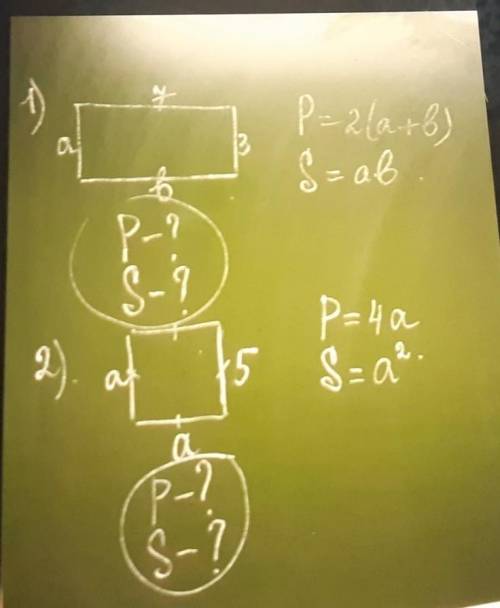 1)
7
a
3
b
P=2(a+b)
S=ab.
P-?
S-?
2).
a
5
a
P=4a
S=a².
P-?
S-?